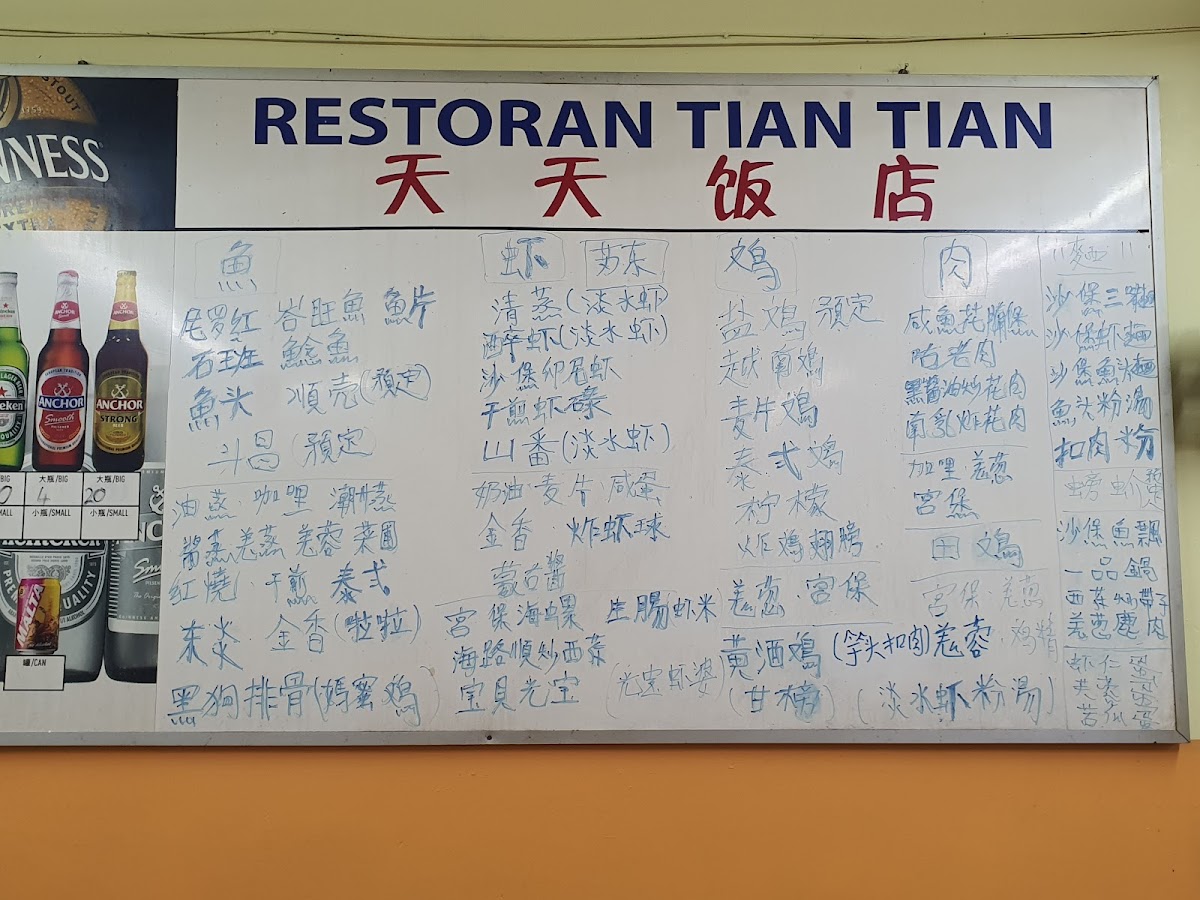 RESTORAN TIAN TIAN
天天饭店
STOUT
NNESS
魚
尼罗红 峇旺魚 魚片
石斑 鯰魚
魚头 順壳(預定)
斗昌(預定)
油蒸 咖哩 潮蒸
醬蒸 羗蒸 羗蓉 菜圃
红燒 干煎 泰式
东炎 金香(啦啦)
黑狗排骨(媽蜜鸡)
虾 苏东
清蒸(淡水虾
醉虾(淡水虾)
沙煲卵尾虾
干煎虾碌
山番(淡水虾)
奶油·麦片·咸蛋
金香·炸虾球
蒙古醬
宮保海螺 生腸(虾米)
海路順炒西芹
宝贝光宝
鸡
盐鸡預定
越南鸡
麦片鸡
泰式鸡
柠檬
炸鸡翅膀
羗葱·宮保
黄酒鸡(竽头扣肉)羗蓉
(淡水虾粉湯)
肉
咸魚花腩煲
咕老肉
黑醬油炒花肉
南乳炸花肉
加哩·羗葱
宮煲
田鸡
宮保·羗葱
"麵"
沙煲三
沙煲虾麵
沙煲魚头麵
魚头粉湯
扣肉粉
沙煲魚飄
一品鍋
西芹炒带子
羗葱鹿肉
虾仁蛋
苦瓜蛋
LAGER BEER
eken
QUALITY
ANCHOR
Smooth
ANCHOR
STRONG
BEER
大瓶/BIG
大瓶/BIG
4
20
小瓶/SMALL
小瓶/SMALL
MALTA
罐/CAN